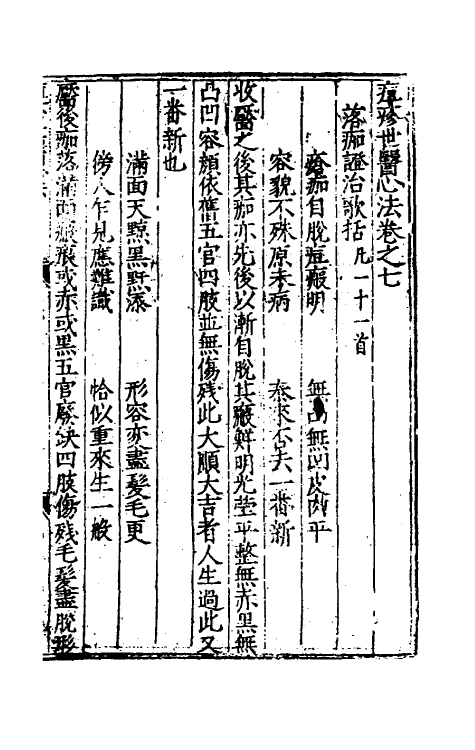 痘疹世醫心法卷之七
落痂證治歌括凡一十一首
痂自脫痘瘢明　無凸無凹皮肉平
容貌不殊原未病　泰來否去一番新
收靨之後其痂亦先後以漸自脫其瘢鮮明光瑩平整無赤黒無
凸凹容顔依舊五官四肢並無傷殘此大順大吉者人生過此又
一番新也
滿面天黥黒黙添　形容亦盡髮毛更
傍人乍見應難識　恰似重來生一般
靨後痂落滿面瘢痕或赤或黒五官廢缺四肢傷殘毛髮盡脫形